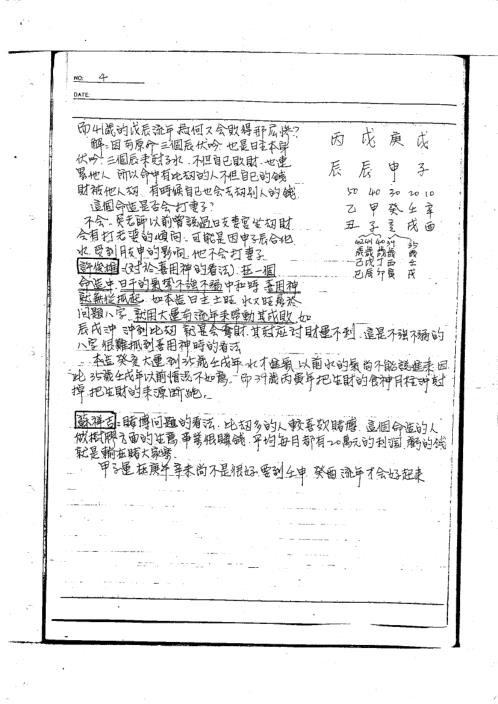 NO: 4
DATE:
而41歲的戊辰流年為何又会敗得那麼慘?
解:因為原命三個辰伏吟 也是日主本年
伏吟 三個辰來冠子水 不但自己敗財 也連
累他人 所以命中有比劫的人不但自己的錢
財被他人劫 有時候自己也会去劫別人的錢
這個命造是否会打妻子?
不会 吳老師以前曾強調過日支妻宮坐劫財
会有打老婆的傾向 可能是因申子辰合化
水 受到月支申的影响 他不会打妻子
許俊雄:(对於喜用神的看法) 在一個
命造中 日干的氣勢不強不弱中和時 喜用神
就難以抓起 如本造日主土旺 水又旺屬於
問題八字 就用大運与流年來帶動其成敗 如
辰戌冲 冲到比劫 就是会奪財 其冠应对財運不利 這是不強不弱的
八字很難抓到喜用神時的看法
本造癸亥大運到35歲壬戌年 水才進氣 以前水的氣尚不能說進來 因
比35歲壬戌年以前情況不如意 而39歲丙寅年把生財的食神月柱冲尅
掉 把生財的來源斷絕。
蘇祥吉:賭博問題的看法 比劫多的人較喜歡賭博 這個命造的人
做樹脂方面的生意 事業很賺錢 平均每月都有20萬元的利潤 虧的錢
就是輸在賭大家樂
甲子運在庚午 辛未尚不是很好 要到壬申 癸酉流年才会好起來
丙 戊 庚 戊
辰 辰 申 子
50 40 30 20 10
乙 甲 癸 壬 辛
丑 子 亥 戌 酉
42 41 40 39 35
歲 歲 歲 歲 歲
己 戊 丁 丙 壬
巳 辰 卯 寅 戌